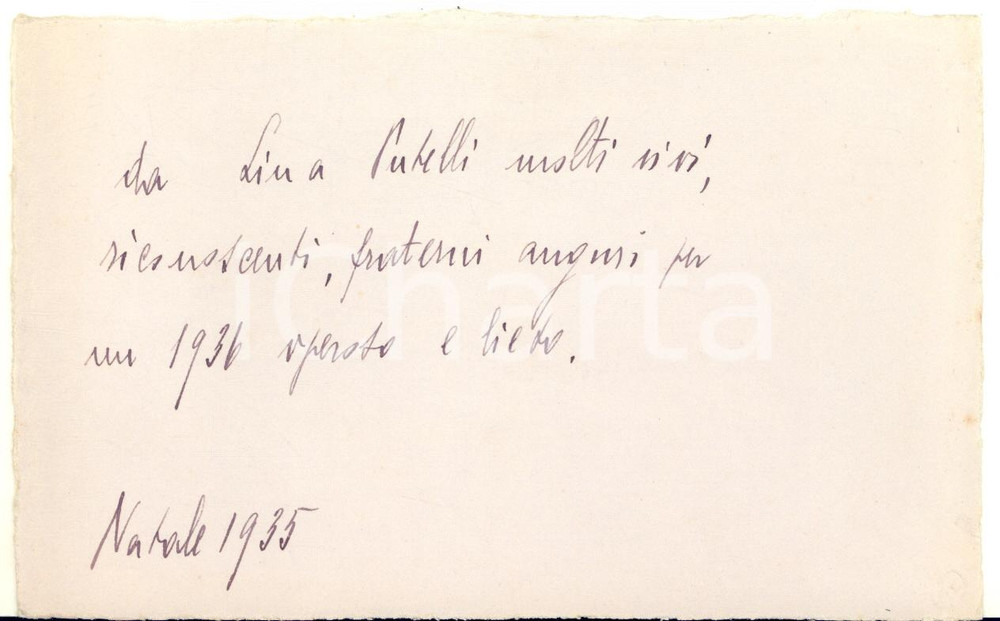 da Lina Putelli molti vivi,
riconoscenti, fraterni auguri per
un 1936 operoso e lieto.
Natale 1935
iCharta